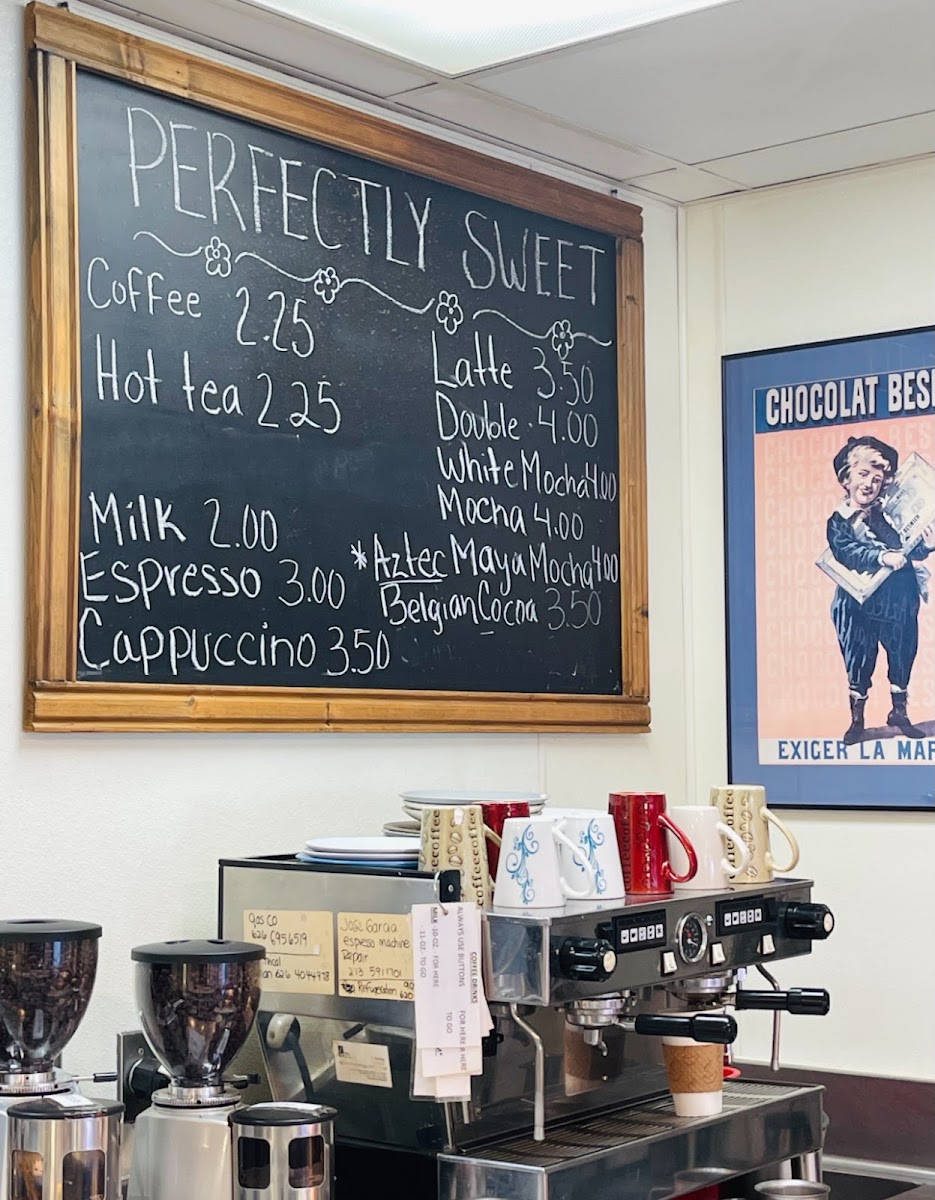 PERFECTLY SWEET
Coffee 2.25
Hot tea 2.25
Milk 2.00
Espresso 3.00
Cappuccino 3.50
Latte 3.50
Double 4.00
White Mocha 4.00
Mocha 4.00
*Aztec Maya Mocha 4.00
Belgian Cocoa 3.50
CHOCOLAT BES
EXIGER LA MAR
gas CO
626 6956519
626 4044978
Jose Garcia
espresso machine
Repair
213 5911701
Refrigeration
626
COFFEE DRINKS
ALWAYS USE BUTTONS
FOR HERE
TO GO
MILK -10 OZ. FOR HERE
-11 OZ. TO GO
coffee